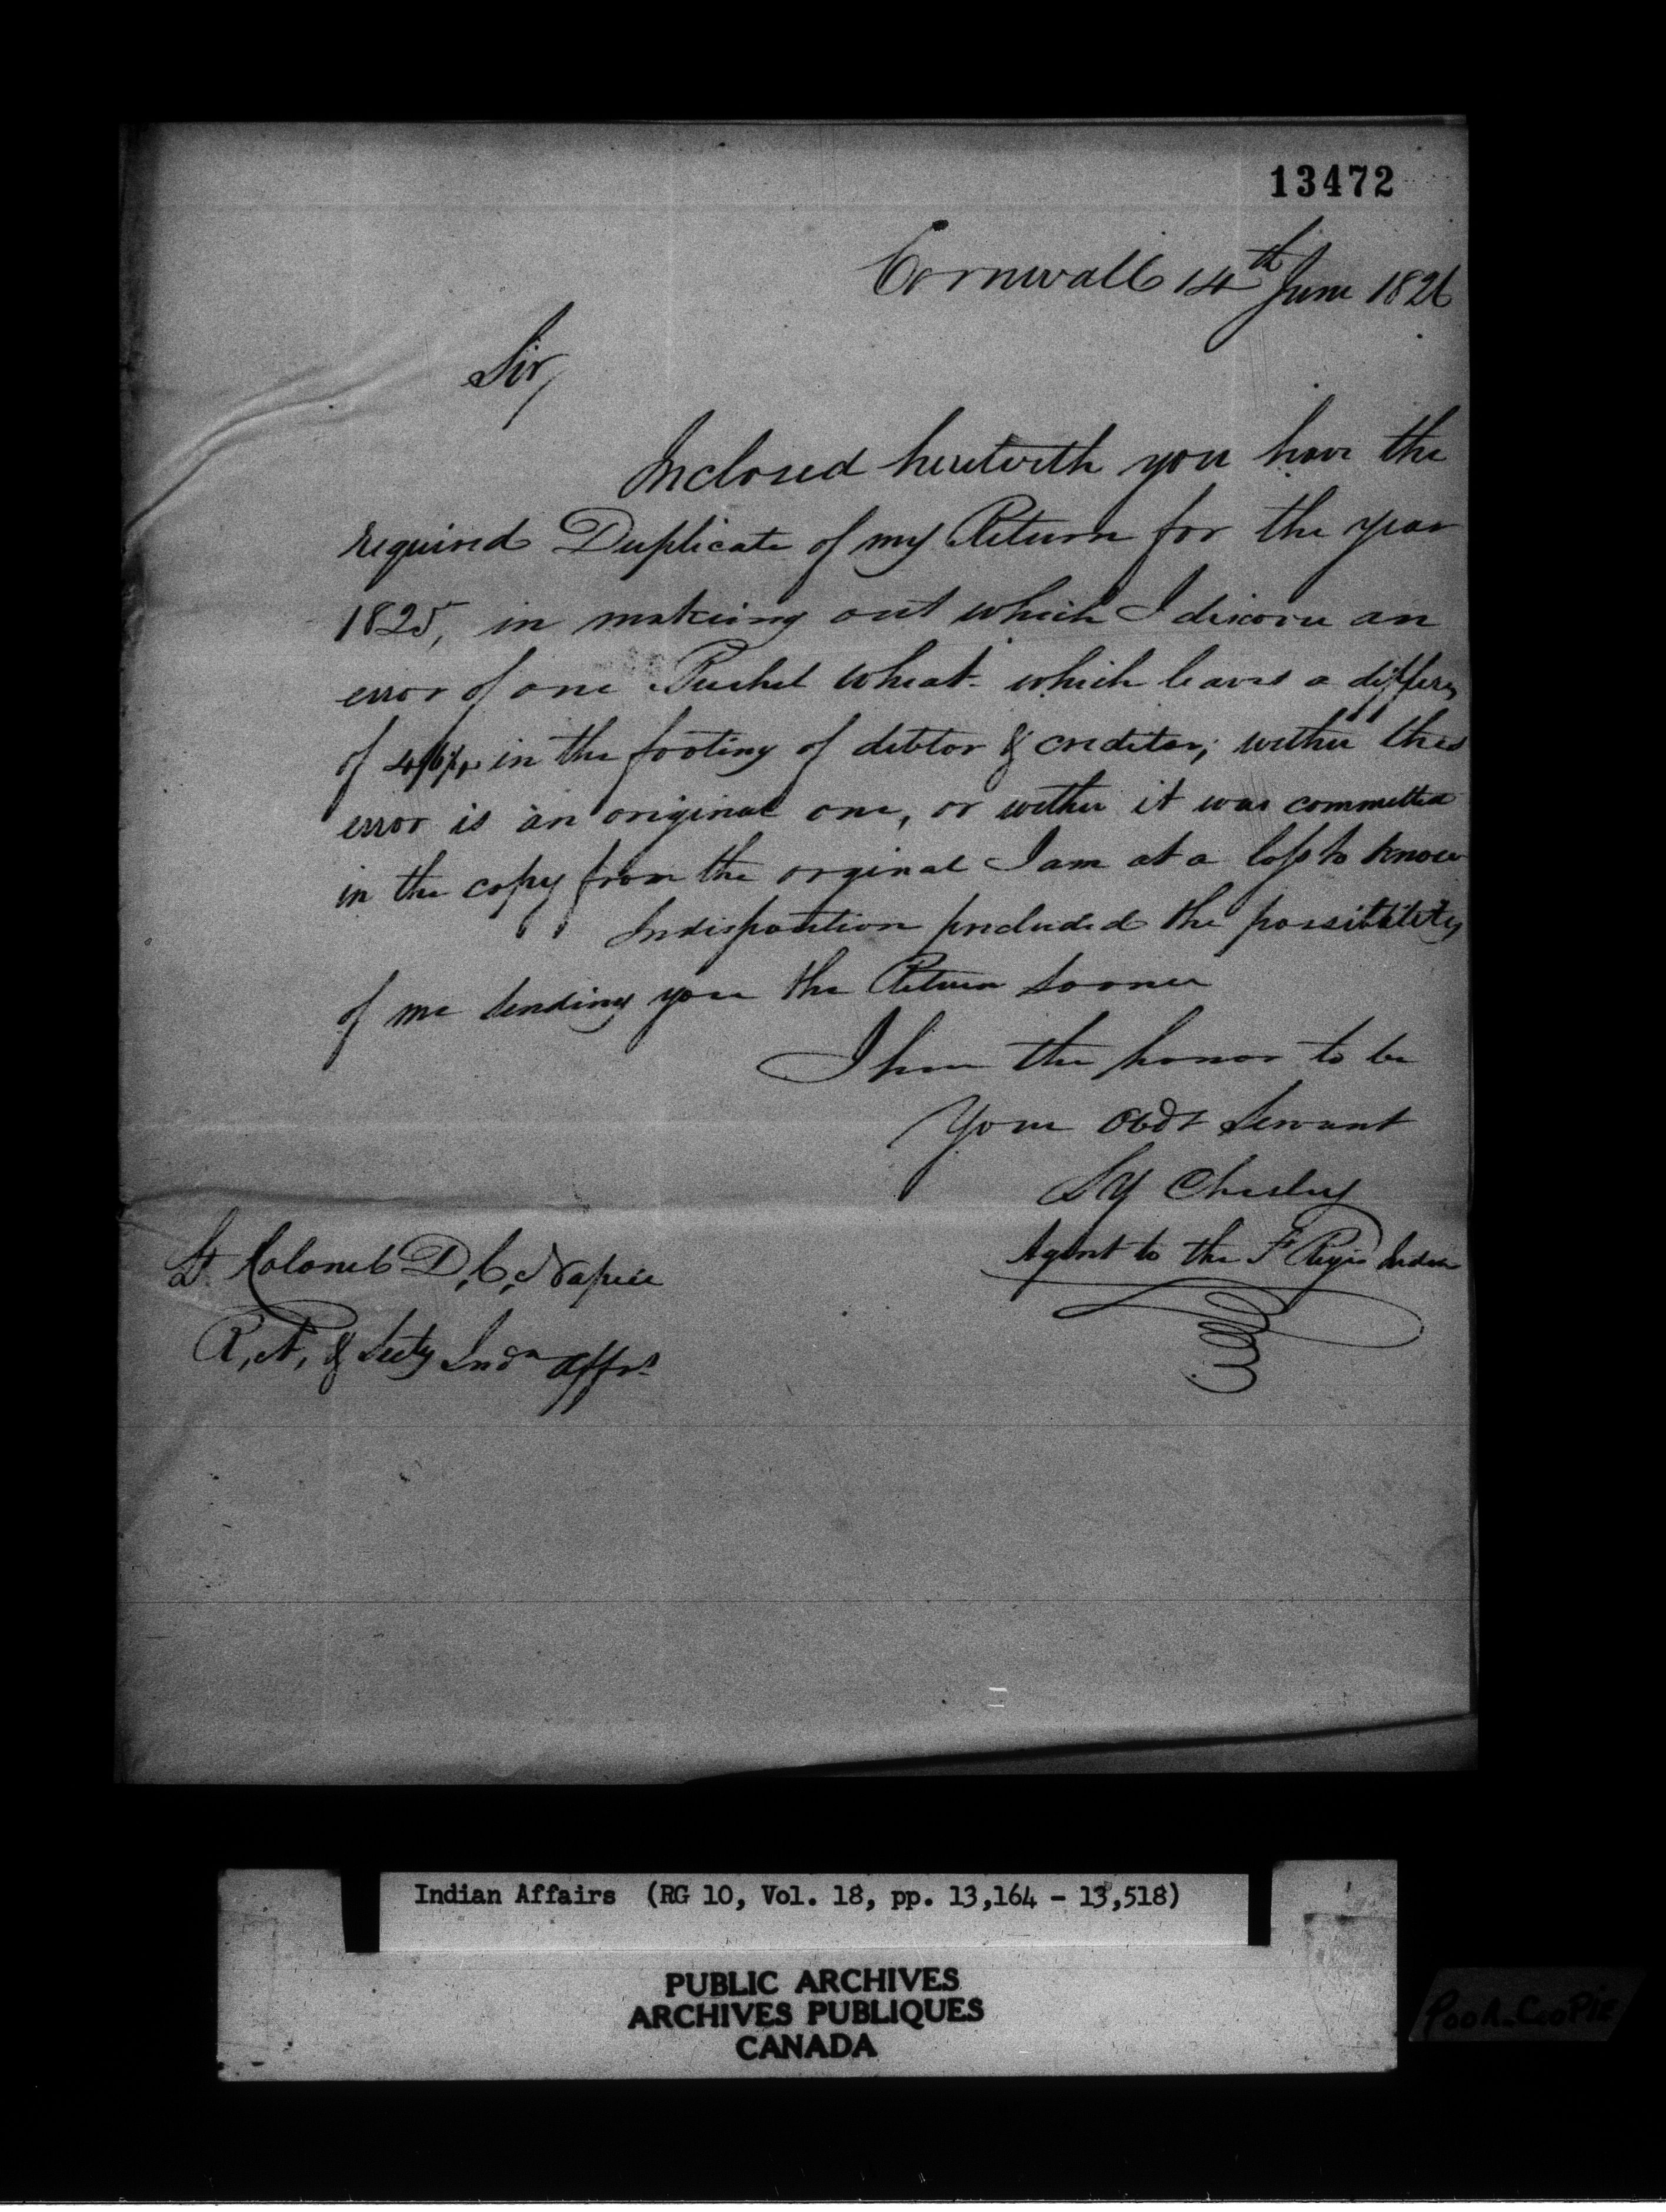 13472
Cornwall 14th June 1826
Sir,
Inclosed herewith you have the
required Duplicate of my Return for the year
1825, in makeing out which I discover an
error of one Bushel wheat which leaves a differ
of in the footing of debtor & creditor; wether this
error is an original one, or wether it was committed
in the copy from the orginal I am at a loss to know
Indisposition precluded the possibility
of me sending you the Return sooner
I have the honor to be
Your Obdt Servant
S Y Chesley
Agent to the St Regis Indian
Lt Colonel D, C, Napier
R, A, & Secty Indn Affrs
Indian Affairs (RG 10, Vol. 18, pp. 13,164 - 13,518)
PUBLIC ARCHIVES
ARCHIVES PUBLIQUES
CANADA
POOR COPIE